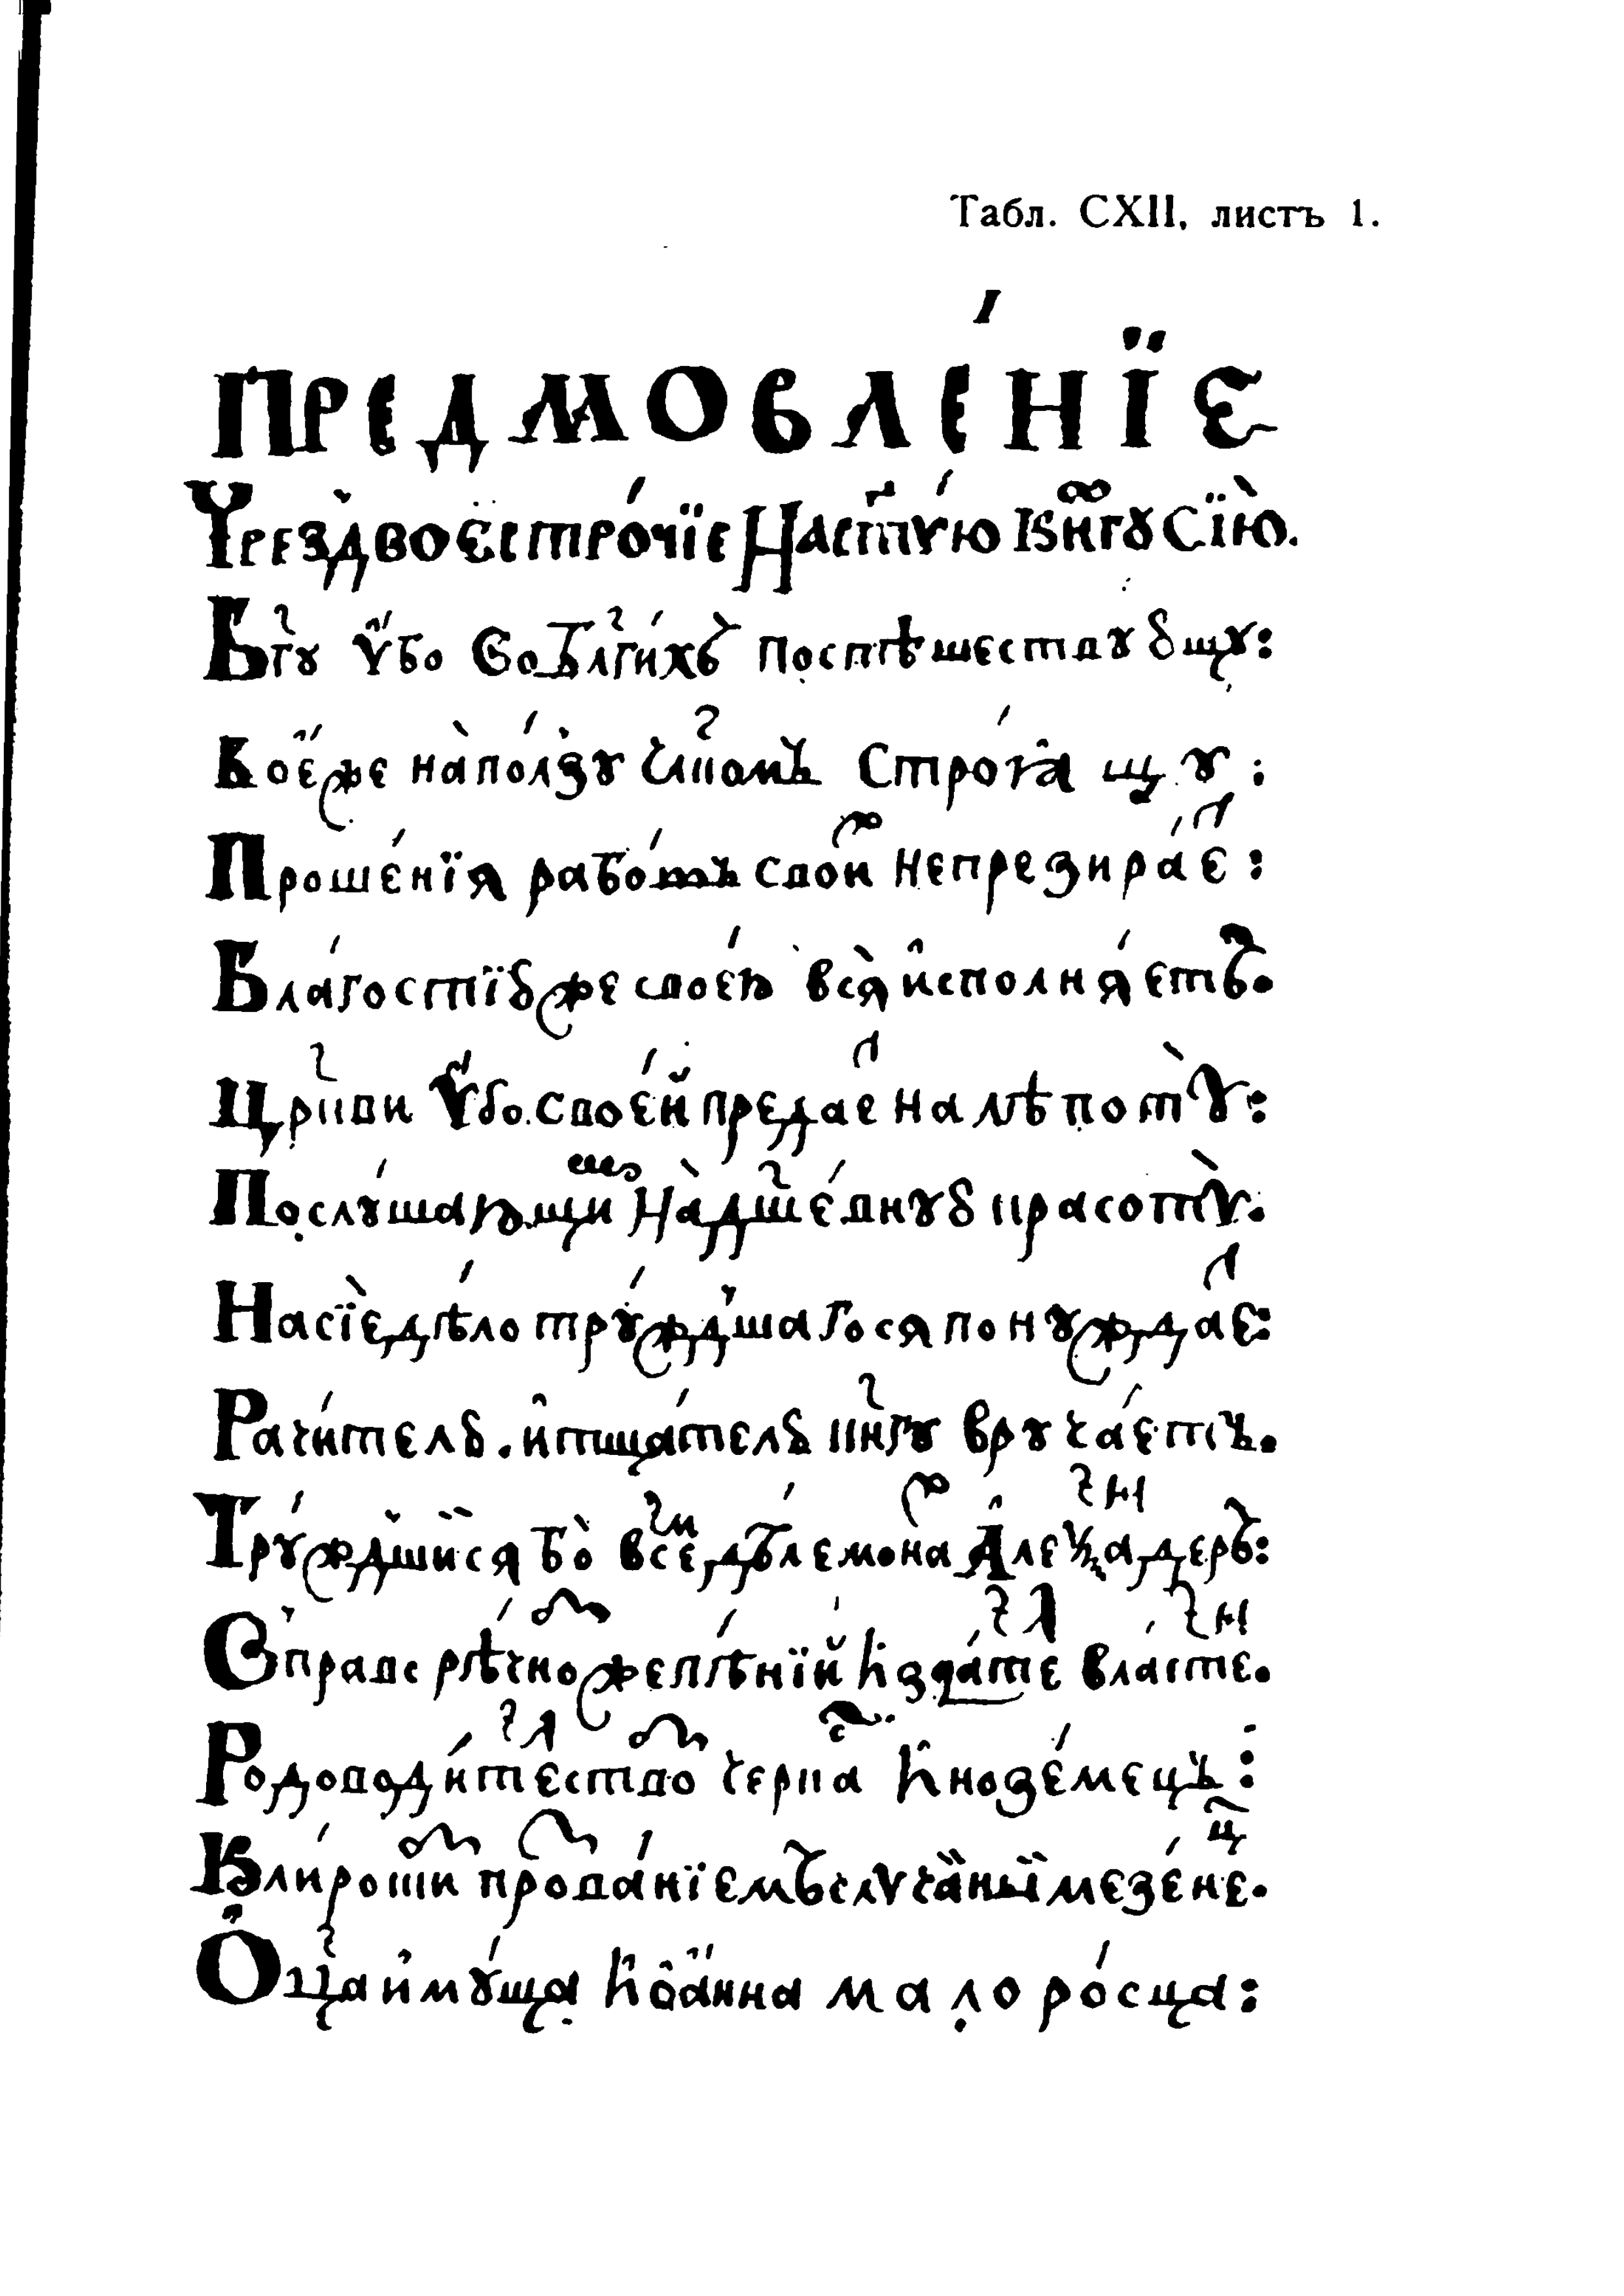 Табл. CXII, листъ 1.
ПРЕДМОВЛЕ́НЇЕ
Чрез̾двоестро́чїе Наст҃ую кн҃гу Сїю̀.
Бг҃у ᲂу҆́бо Во бл҃ги́хъ поспѣшествующу:
Кое́же на̀по́лзу чл҃комъ Стро́ѧщу:
Проше́нїя рабо́тъ свои́ непрезира́е:
Бла́гостїюже свое́ю вся̀ и҆сполня́етъ.
Цр҃кви ᲂу҆́бо свое́й предае на лѣпоту̀:
Послу́шающи На̀ дш҃е́вную красоту̀.
На сїѐ дѣ́ло тру́ждшагося понуждае:
Рачи́тель. и҆ тща́тель кн҃гу вруча́етъ.
Тру́ждшийся бо̀ все дѣлемона А҆леѯадеръ:
Вправс рѣ́чноже пѣ́нїй И҆зда́те вла́сте.
Родододи́тество черна И҆нозе́мецъ:
Кли́роши прода́нїемъ случаный мезе́не.
Ѻ҆ц҃а и҆му́ща І҆оа́нна малоро́сца: